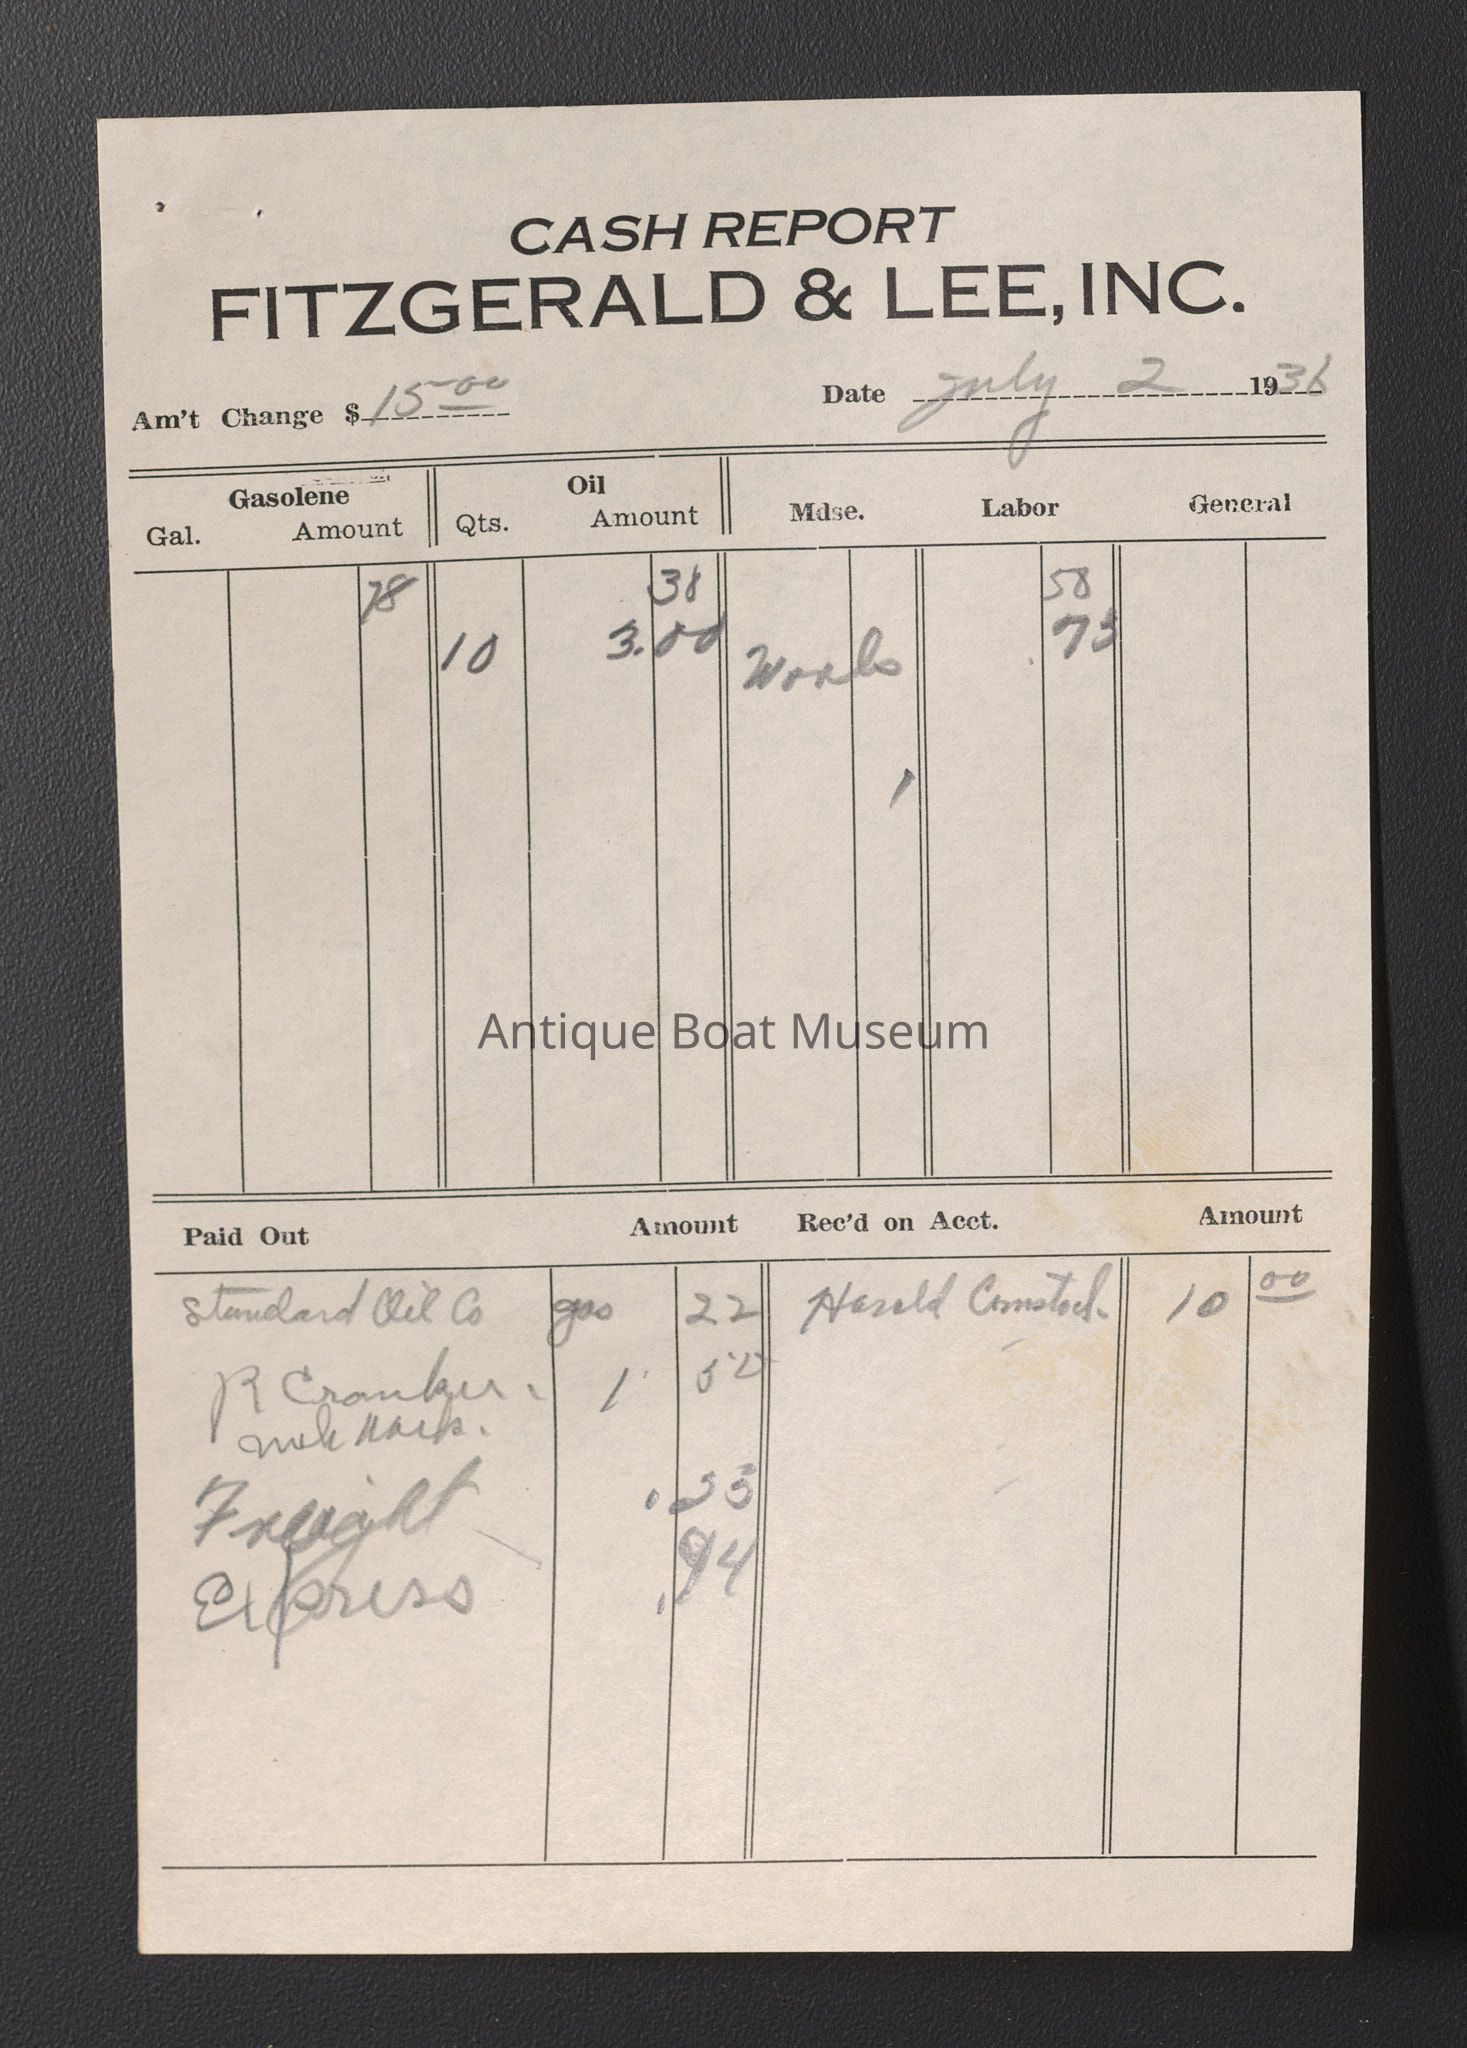 CASH REPORT
FITZGERALD & LEE, INC.
Am't Change $ 15.00 Date July 2 1936
Gasolene Oil Mdse. Labor General
Gal. Amount Qts. Amount
78 38 58
10 3.00 .75
Antique Boat Museum
Paid Out Amount Rec'd on Acct. Amount
Standard Oil Co gas 22 Harald Comstock 10 00
R Cranker 1 50
Freight
Express .94